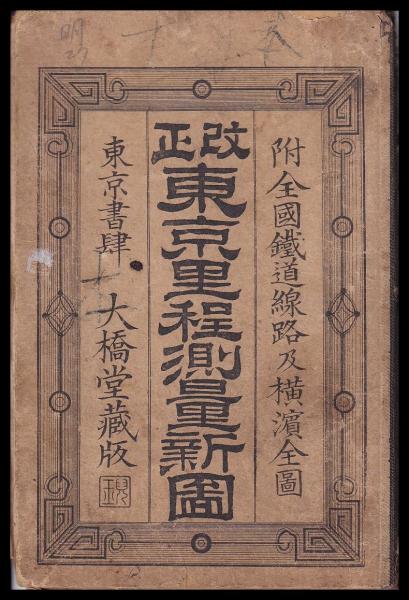 附全國鐵道線路及橫濱全圖
改正
東京里程測量新圖
東京書肆 大橋堂藏版